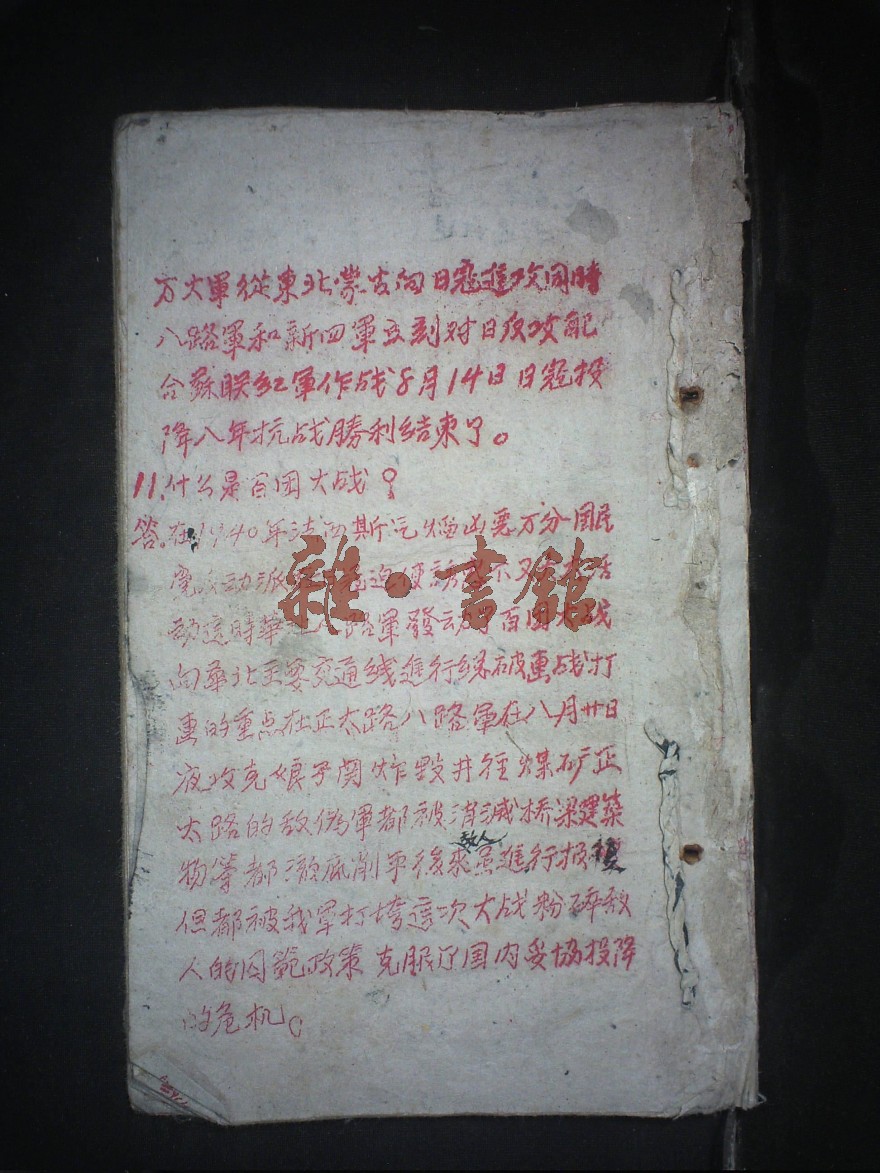 万大軍從東北蒙古向日寇進攻同時
八路軍和新四軍立刻対日反攻配
合蘇联紅軍作战8月14日日寇投
降八年抗战勝利结束了。
11.什么是百团大战?
答.在1940年法西斯气焰凶悪万分国民
党反动派 迫 誘 不 活
动這時華北八路軍發动了百团大战
向華北主要交通线進行 破 战打
的重点在正太路八路軍在八月廿日
夜攻克娘子関炸毀井徑煤矿正
太路的敌偽軍都被消滅桥梁建築
物等都澈底削平後來敌人虽進行报復
但都被我軍打垮這次大战粉碎敌
人的囚籠政策克服了国内妥协投降
的危机。
雜·書館